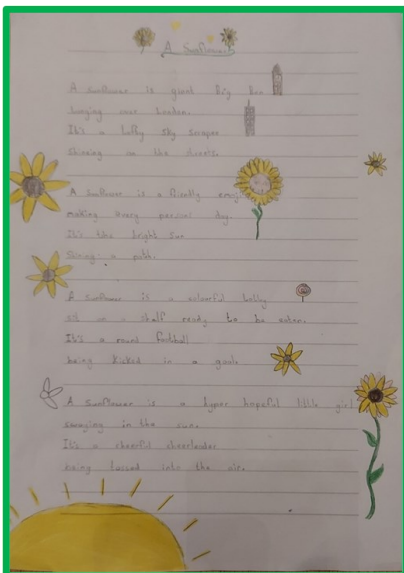 A Sunflower
A sunflower is giant Big Ben
hanging over London.
It's a lofty sky scraper
Shining in the streets.
A sunflower is a friendly emoji
making every persons day.
It's like bright sun
Shining a path.
A sunflower is a colourful lolly
sit on a shelf ready to be eaten.
It's a round football
being kicked in a goal.
A sunflower is a hyper hopeful little girl
swaying in the sun.
It's a cheerful cheerleader
being tossed into the air.